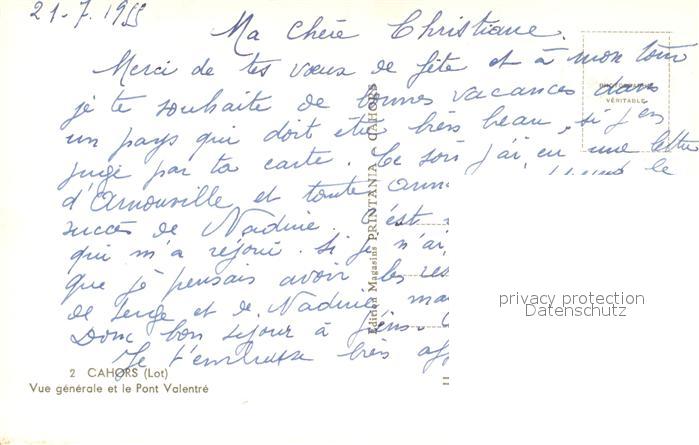 21-7.1955
Ma Chère Christiane.
Merci de tes vœux de fête et à mon tour
je te souhaite de bonnes vacances dans
un pays qui doit être très beau, si j'en
juge par ta carte. Ce soir j'ai eu une lettre
d'Arnouville et toute le
succès de Nadine. C'est
qui m'a réjoui. Si je n'ai
que je pensais avoir les res
de Serge et de Nadine, ma
Donc bon séjour à
Je t'embrasse très aff
VÉRITABLE
Edition Magasins PRINTANIA - CAHORS
privacy protection
Datenschutz
2 CAHORS (Lot)
Vue générale et le Pont Valentré